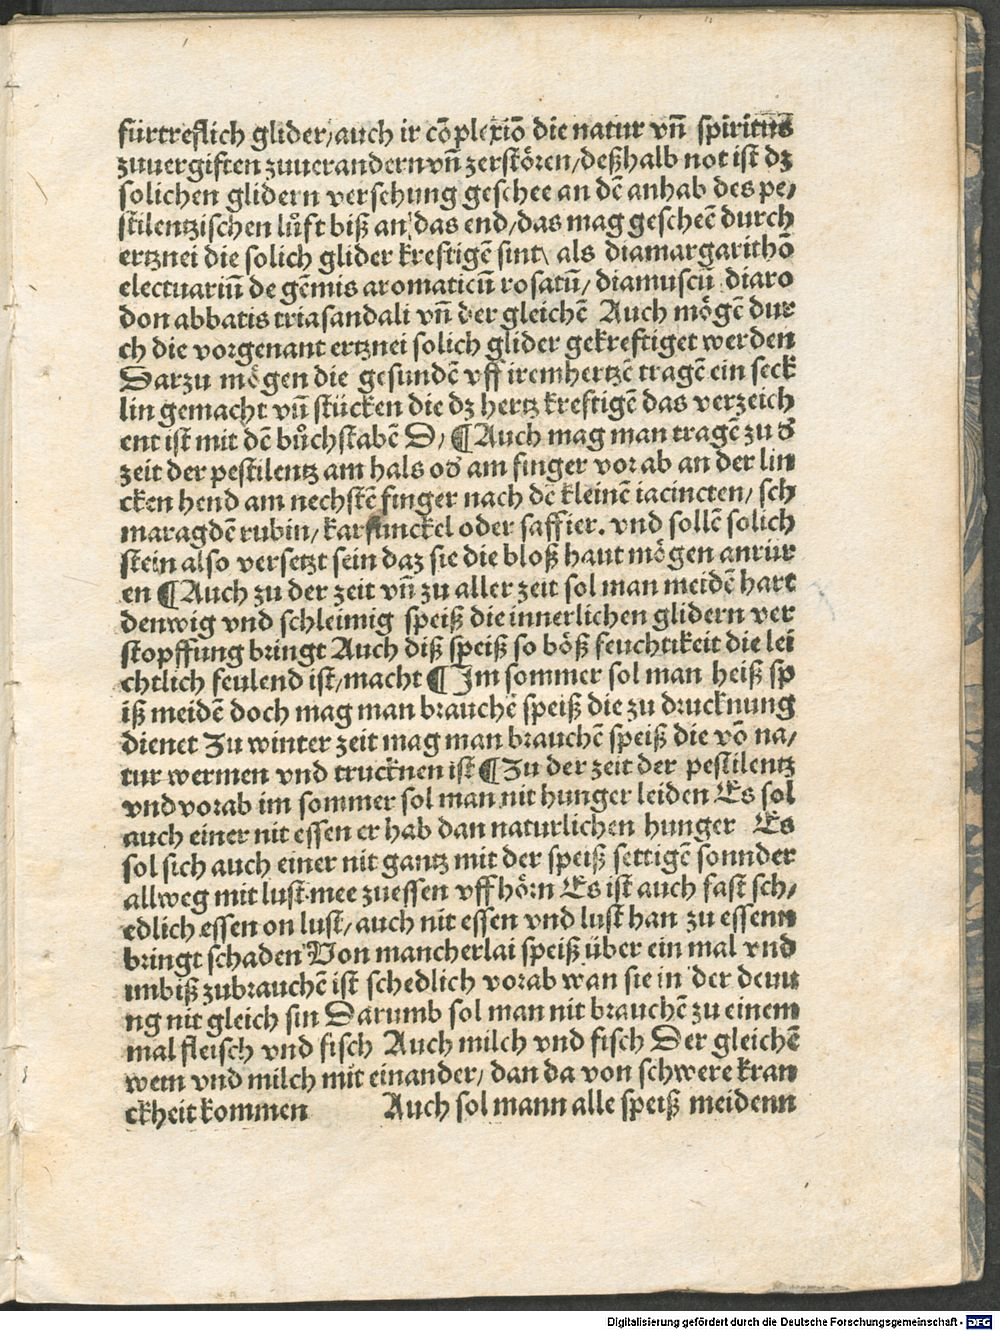 fürtreflich glider/auch ir cõplexiõ die natur vñ spiritus
zuuergiften zuuerandern vñ zerstören/deßhalb not ist dz
solichen glidern versehung geschee an dẽ anhab des pe/
stilentzischen lůft biß an das end/das mag gescheẽ durch
ertznei die solich glider kreftigẽ sint als diamargarithõ
electuariũ de gẽmis aromaticũ rosatũ/diamuscũ diaro
don abbatis triasandali vñ der gleichẽ Auch mögẽ dur
ch die vorgenant ertznei solich glider gekreftiget werden
Darzu mögen die gesundẽ vff irem hertzẽ tragẽ ein seck
lin gemacht vñ stücken die dz hertz kreftigẽ das verzeich
ent ist mit dẽ bůchstabẽ D/ ¶ Auch mag man tragẽ zu d̕
zeit der pestilentz am hals od̕ am finger vorab an der lin
cken hend am nechstẽ finger nach dẽ kleinẽ iacincten/sch
maragdẽ rubin/karfunckel oder saffier. vnd sollẽ solich
stein also versetzt sein daz sie die bloß haut mögen anrür
en ¶ Auch zu der zeit vñ zu aller zeit sol man meidẽ hart
denwig vnd schleimig speiß die innerlichen glidern ver
stopffung bringt Auch diß speiß so böß feuchtikeit die lei
chtlich feulend ist/macht ¶ Im sommer sol man heiß sp
iß meidẽ doch mag man brauchẽ speiß die zu drucknung
dienet Zu winter zeit mag man brauchẽ speiß die võ na/
tur wermen vnd trucknen ist ¶ Zu der zeit der pestilentz
vnd vorab im sommer sol man nit hunger leiden Es sol
auch einer nit essen er hab dan naturlichen hunger Es
sol sich auch einer nit gantz mit der speiß settigẽ sonnder
allweg mit lust mee zuessen vffhörn Es ist auch fast sch/
edlich essen on lust/auch nit essen vnd lust han zu essenn
bringt schaden Von mancherlai speiß über ein mal vnd
imbiß zubrauchẽ ist schedlich vorab wan sie in der deuu
ng nit gleich sin Darumb sol man nit brauchẽ zu einem
mal fleisch vnd fisch Auch milch vnd fisch Der gleichẽ
wein vnd milch mit einander/dan da von schwere kran
ckheit kommen Auch sol mann alle speiß meidenn
Digitalisierung gefördert durch die Deutsche Forschungsgemeinschaft - DFG